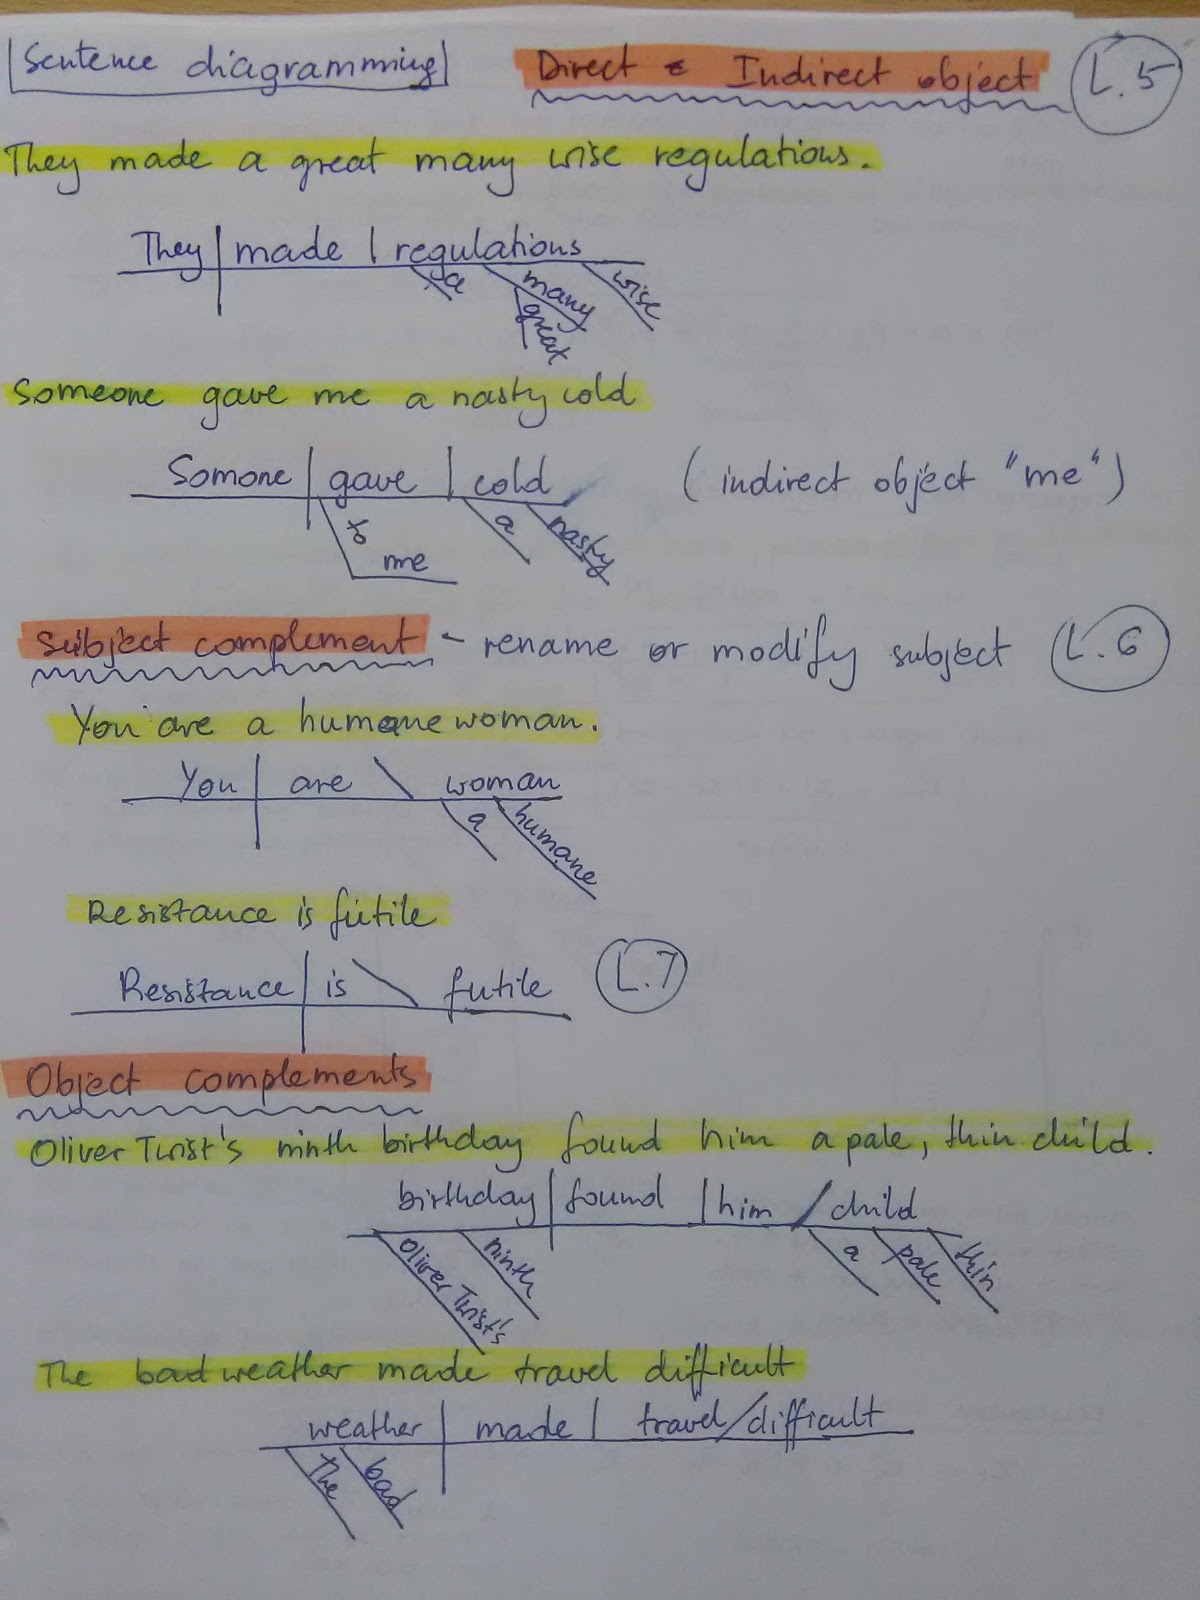 Sentence diagramming Direct & Indirect object L.5
They made a great many wise regulations.
They made regulations
a many wise
great
Someone gave me a nasty cold
Somone gave cold (indirect object "me")
to a nasty
me
Subject complement - rename or modify subject L.6
You are a humane woman.
You are woman
a humane
Resistance is futile
Resistance is futile L.7
Object complements
Oliver Twist's ninth birthday found him a pale, thin child.
birthday found him child
Oliver Twist's ninth a pale thin
The bad weather made travel difficult
weather made travel difficult
The bad